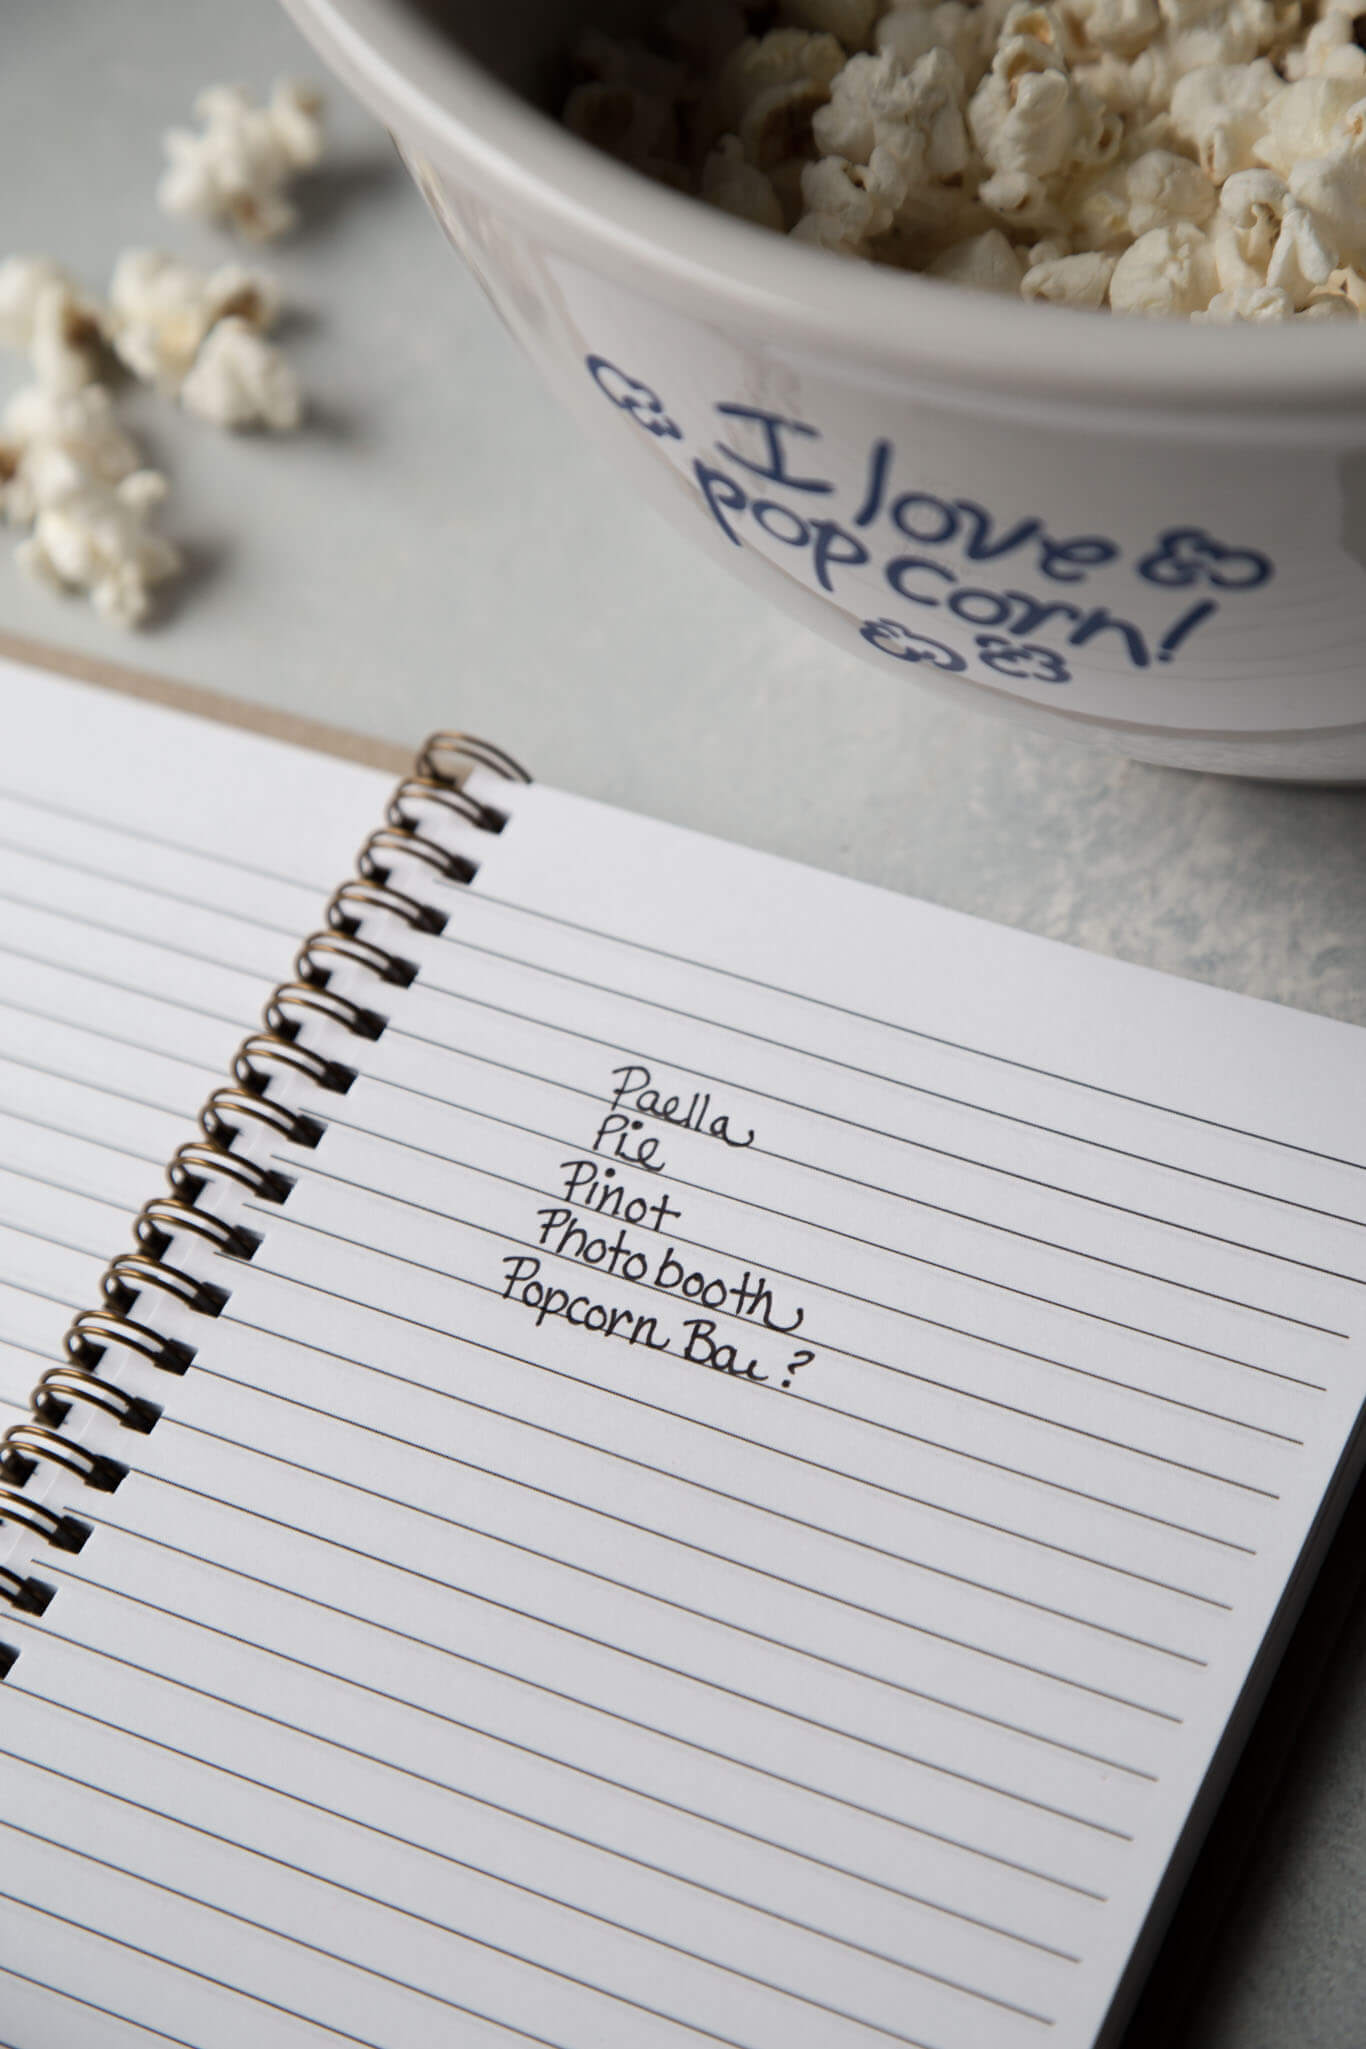 I love
popcorn!
Paella
Pie
Pinot
Photo booth
Popcorn Bar?